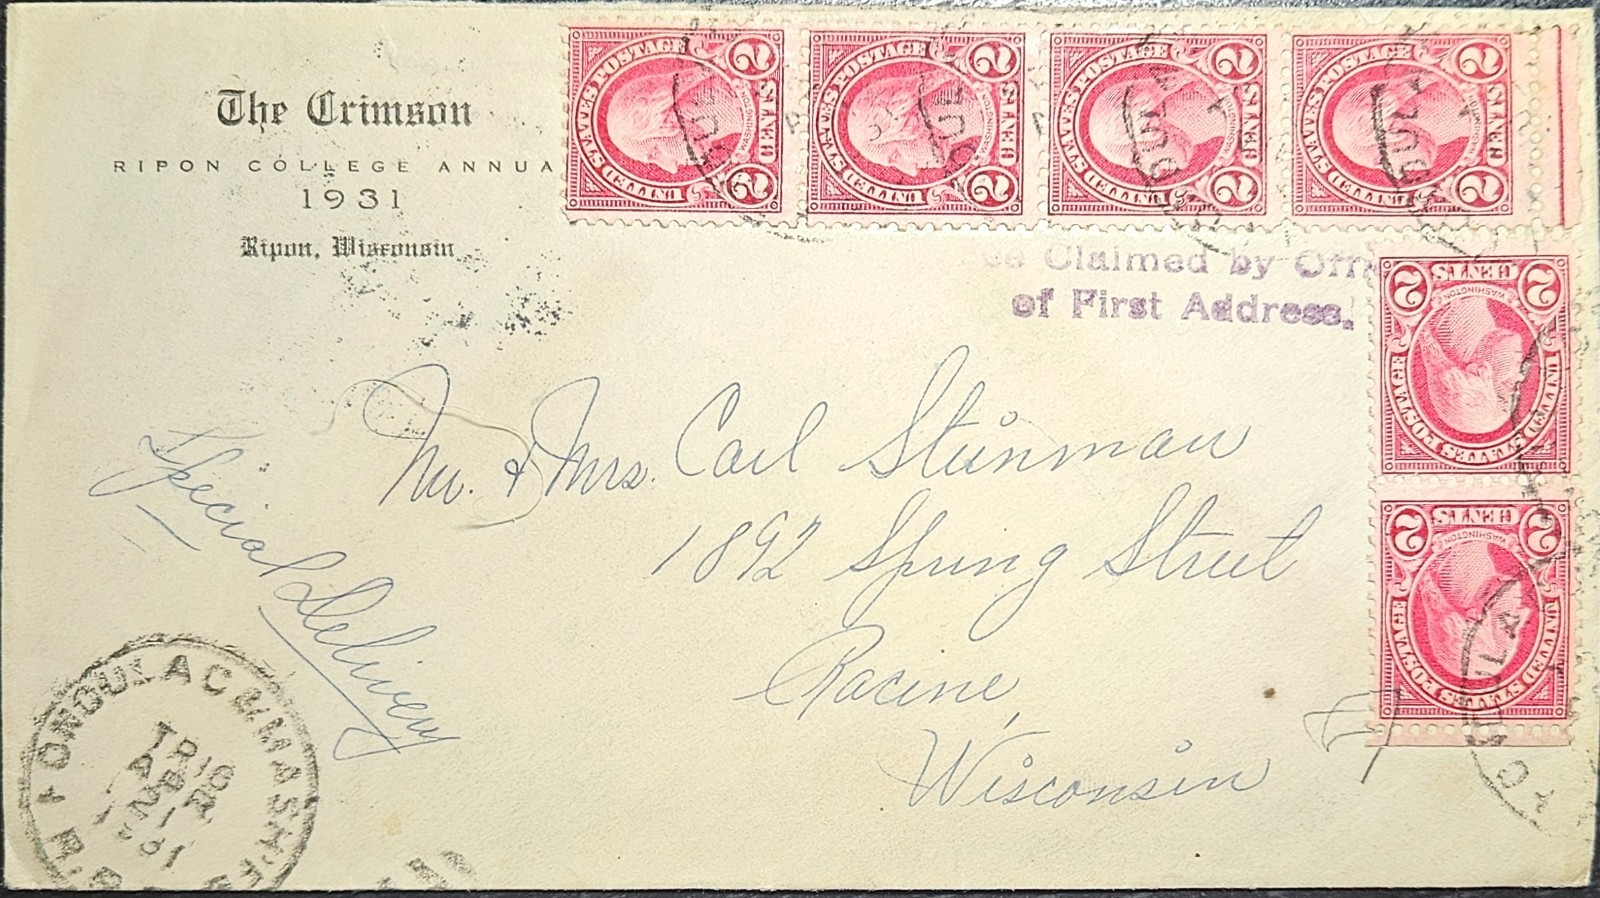 The Crimson
RIPON COLLEGE ANNUA
1931
Ripon, Wisconsin
UNITED STATES POSTAGE
WASHINGTON
2 CENTS 2
UNITED STATES POSTAGE
WASHINGTON
2 CENTS 2
UNITED STATES POSTAGE
WASHINGTON
2 CENTS 2
UNITED STATES POSTAGE
WASHINGTON
2 CENTS 2
UNITED STATES POSTAGE
WASHINGTON
2 CENTS 2
UNITED STATES POSTAGE
WASHINGTON
2 CENTS 2
Claimed by Offi
of First Address.
Special Delivery
Mr. & Mrs. Carl Steinman
1892 Spring Street
Racine,
Wisconsin
FONDULAC & MASH
TR 16
APR
31